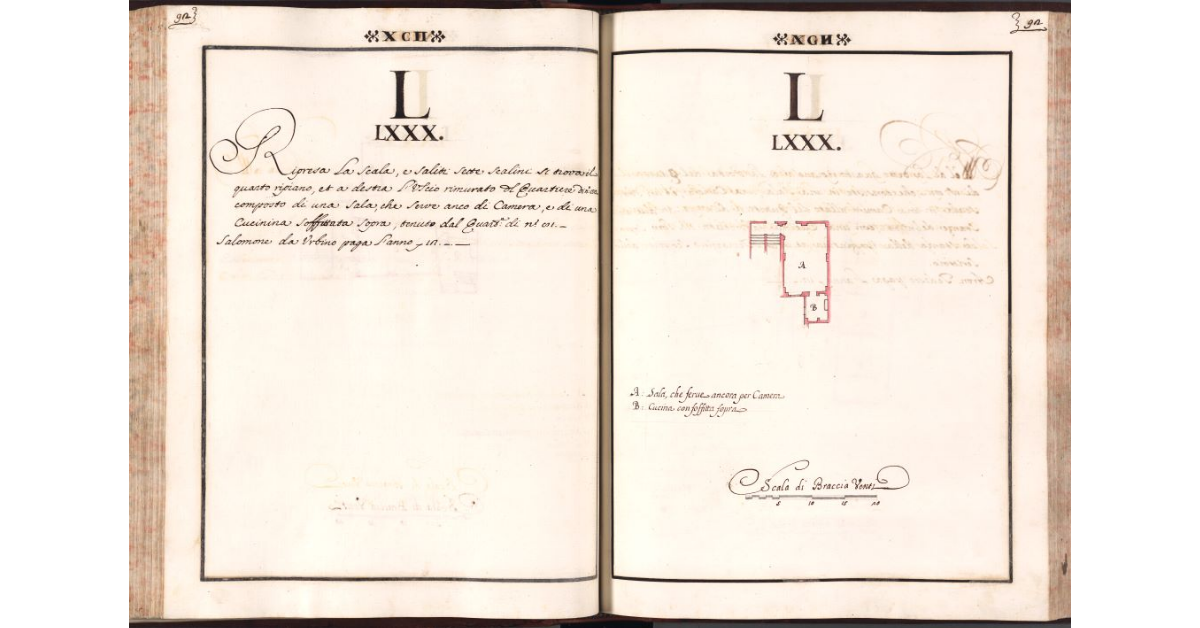 92
XCII
L
LXXX.
Ripresa La Scala, e Saliti Sette Scalini Si trova il
quarto ripiano, et a destra L'Uscio rimurato del Quartiere
composto di una Sala, che Serve anco di Camera, e di una
Cucinina Soffittata Sopra, tenuto dal
Salomone da Urbino paga L'anno
92
XCII
L
LXXX.
A
B
A. Sala, che serve ancora per Camera
B. Cucina con soffitta sopra
Scala di Braccia Venti
5 10 15 20